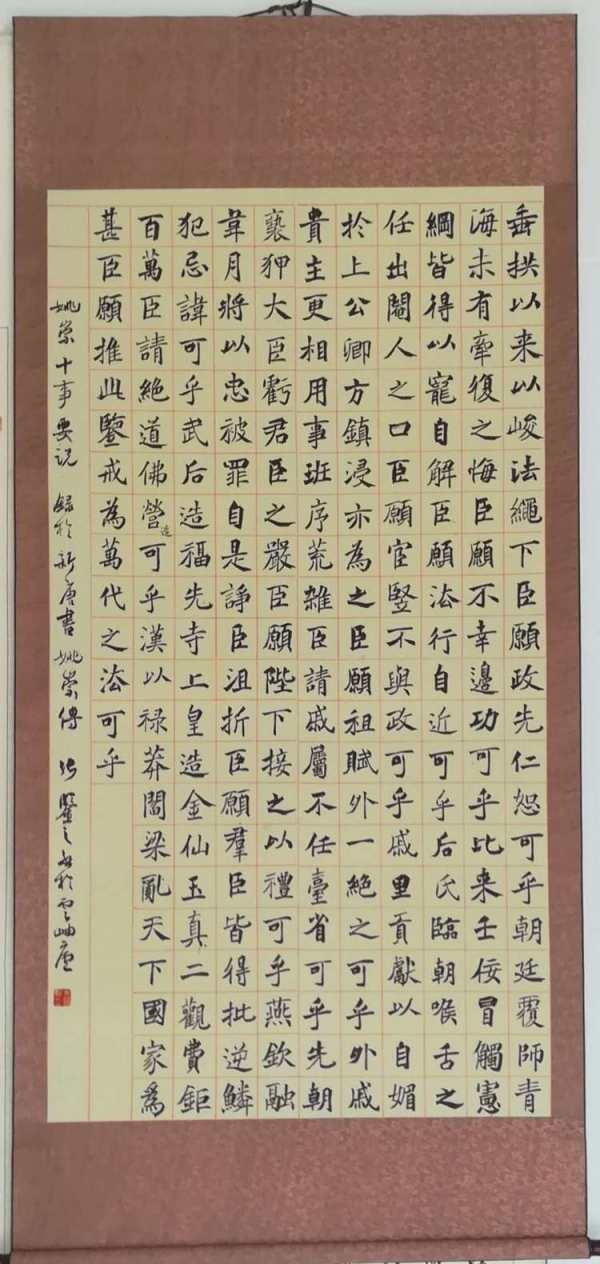 垂拱以来以峻法繩下臣願政先仁恕可乎朝廷覆師青
海未有牽復之悔臣願不幸邊功可乎比来壬佞冒觸憲
綱皆得以寵自解臣願法行自近可乎后氏臨朝喉舌之
任出閹人之口臣願宦豎不與政可乎戚里貢獻以自媚
於上公卿方鎮浸亦為之臣願祖賦外一絕之可乎外戚
貴主更相用事班序荒雜臣請戚屬不任臺省可乎先朝
褻狎大臣虧君臣之嚴臣願陛下接之以禮可乎燕欽融
韋月將以忠被罪自是諍臣沮折臣願羣臣皆得批逆鱗
犯忌諱可乎武后造福先寺上皇造金仙玉真二觀費鉅
百萬臣請絕道佛營造可乎漢以祿莽閻梁亂天下國家為
甚臣願推此鑒戒為萬代之法可乎
姚崇十事要説 錄於新唐書姚崇傳 鑒之書於雲岫廬